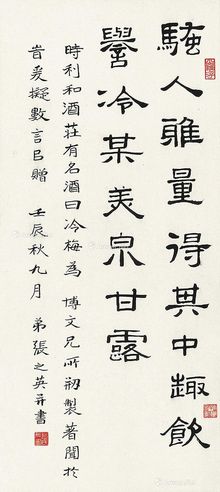 騷人雅量得其中趣飲
譽冷某美泉甘露
時利和酒莊有名酒曰冷梅為 博文兄所剏製著聞於
旹爰擬數言㠯贈 壬辰秋九月 弟張之英并書